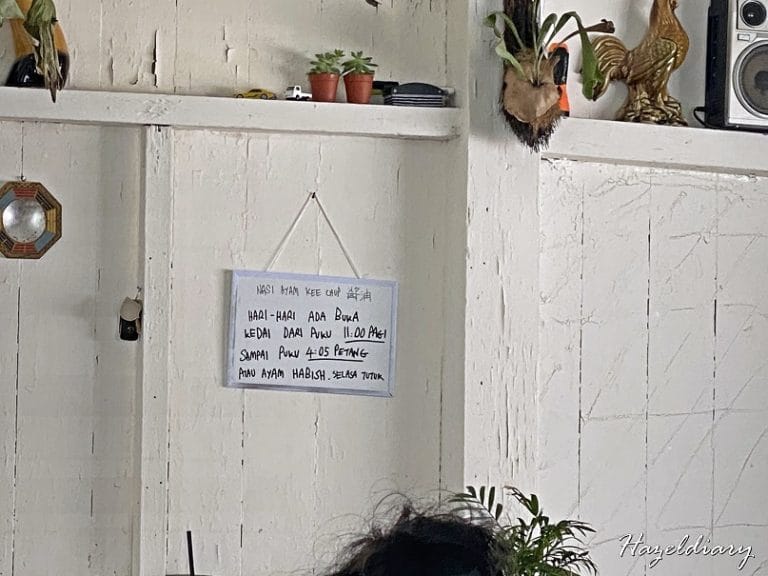 NASI AYAM KEE CHUP 酱油
HARI-HARI ADA BUKA
KEDAI DARI PUKU 11:00 PAGI
SAMPAI PUKU 4:05 PETANG
ATAU AYAM HABISH. SELASA TUTUK
Hazeldiary